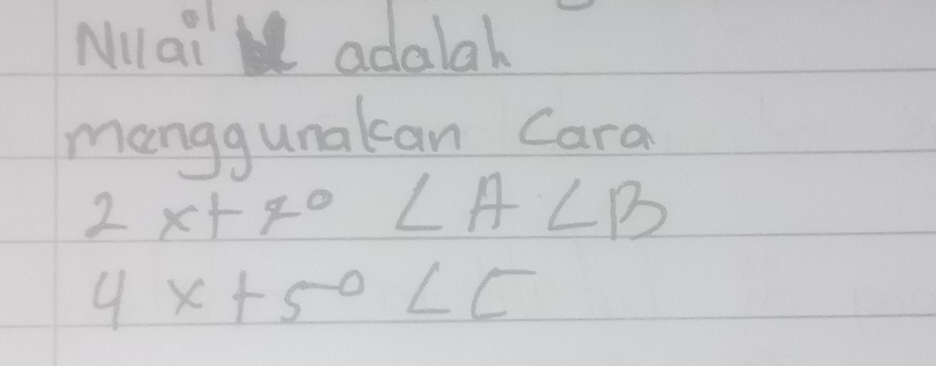 Nilai adalah
menggunakan Cara
2 x + 7° ∠A ∠B
4 x + 5° ∠C